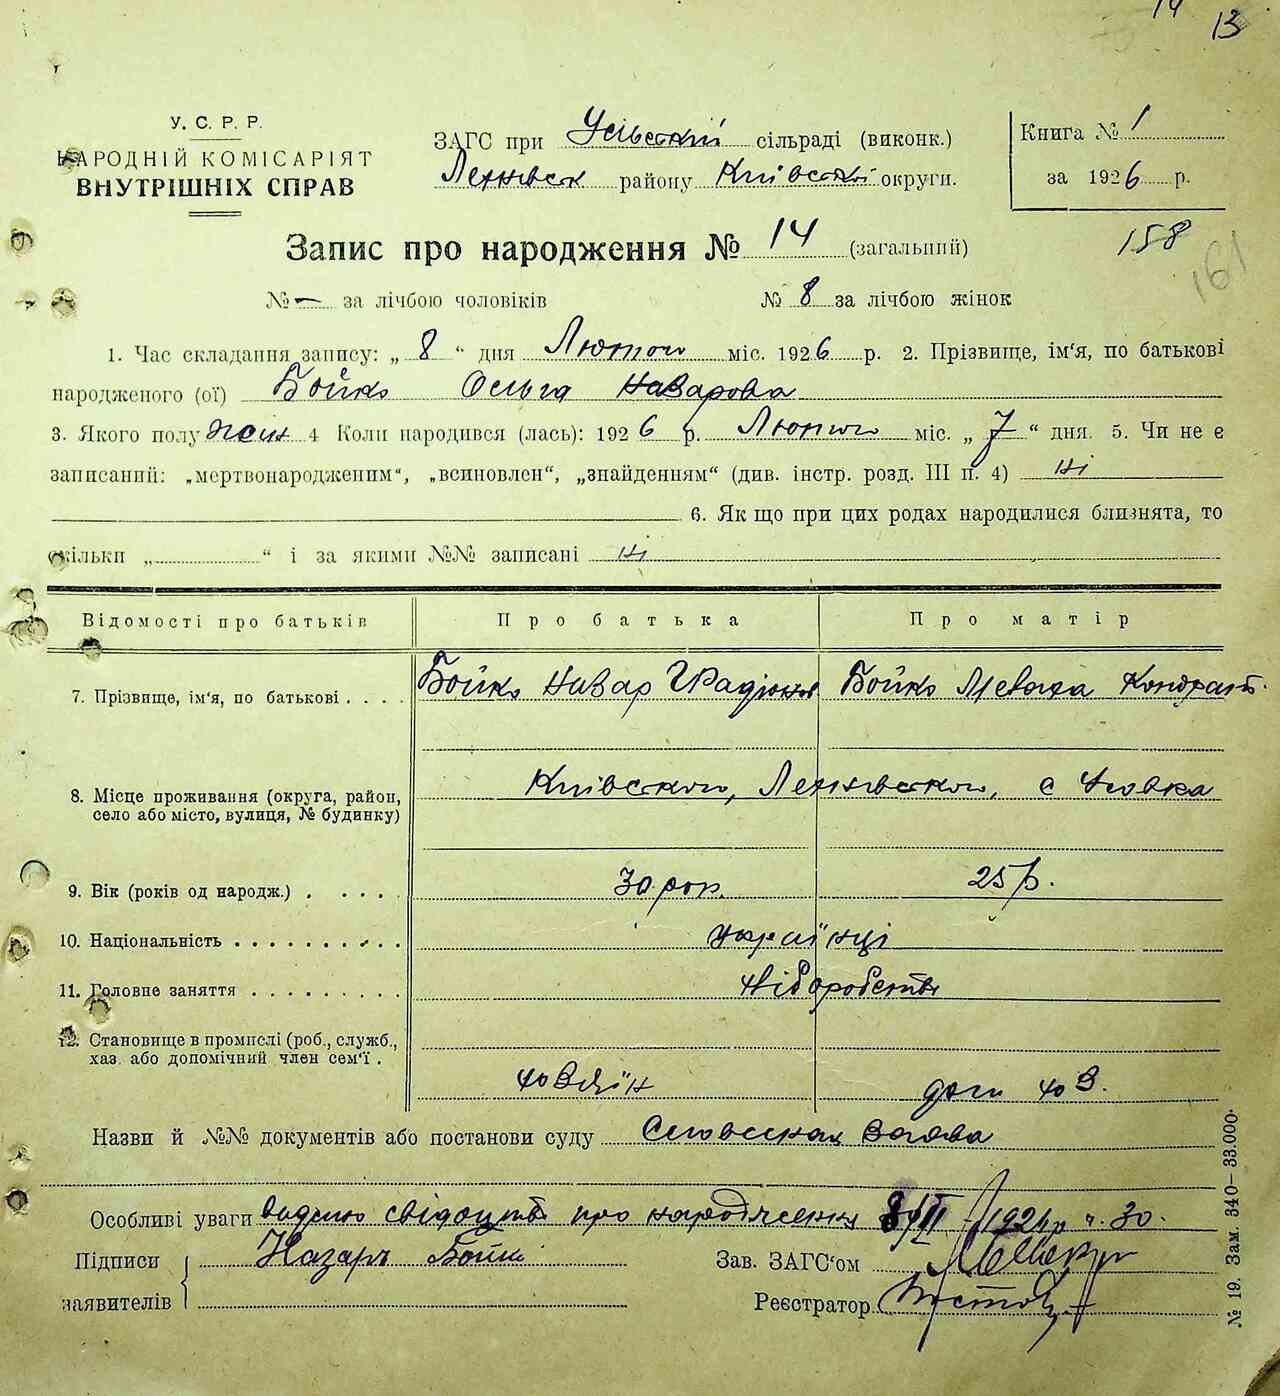 13
У. С. Р. Р.
НАРОДНІЙ КОМІСАРІЯТ
ВНУТРІШНІХ СПРАВ
ЗАГС при Усівській сільраді (виконк.)
району Київської округи.
Книга № 1
за 1926 р.
Запис про народження № 14 (загальний)
158
161
№ — за лічбою чоловіків № 8 за лічбою жінок
1. Час складання запису: „ 8 “ дня Лютого міс. 1926 р. 2. Прізвище, ім'я, по батькові
народженого (ої) Бойко Ольга Назарова
3. Якого полу жін 4 Коли народився (лась): 1926 р. Лютого міс. „ 7 “ дня. 5. Чи не є
записаний: „мертвонародженим“, „всиновлен“, „знайденням“ (див. інстр. розд. III п. 4) ні
6. Як що при цих родах народилися близнята, то
скільки „ “ і за якими №№ записані ні
Відомості про батьків Про батька Про матір
7. Прізвище, ім'я, по батькові . . . . Бойко Назар Бойко Кондрат.
8. Місце проживання (округа, район,
село або місто, вулиця, № будинку) Київського, с Усовка
9. Вік (років од народж.) . . . . 30 рок. 25 р.
10. Національність . . . . . . . . . . українці
11. Головне заняття . . . . . . . . . хліборобство
12. Становище в промислі (роб., служб.,
хаз. або допомічний член сем'ї .
хозяїн
Назви й №№ документів або постанови суду Словесная заява
Особливі уваги видано свідоцтво про народження 8/II 1926 р ч. 30.
Підписи Назаръ Бойко Зав. ЗАГС'ом
заявителів Реєстратор
№ 19. Зам. 340—33.000.